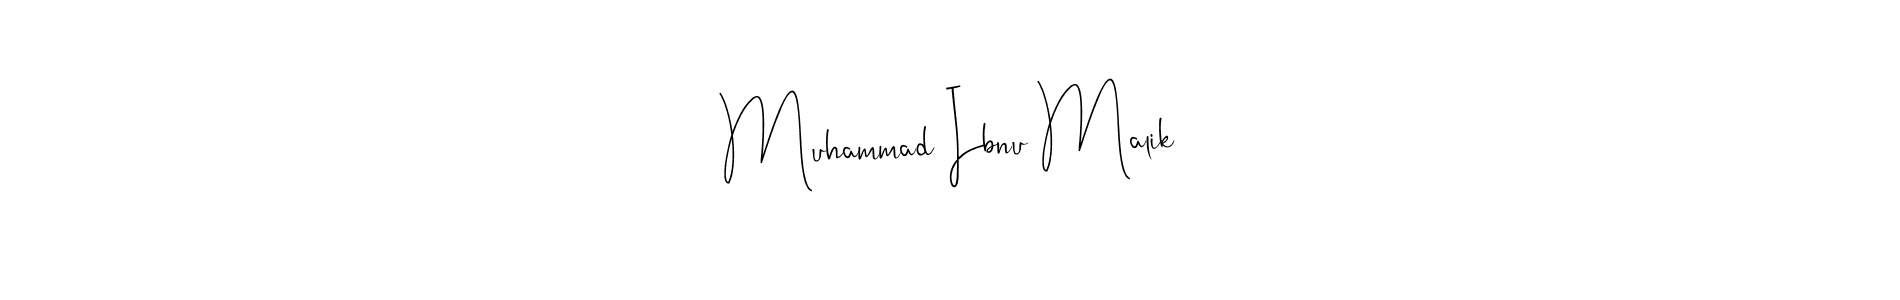 Muhammad Ibnu Malik